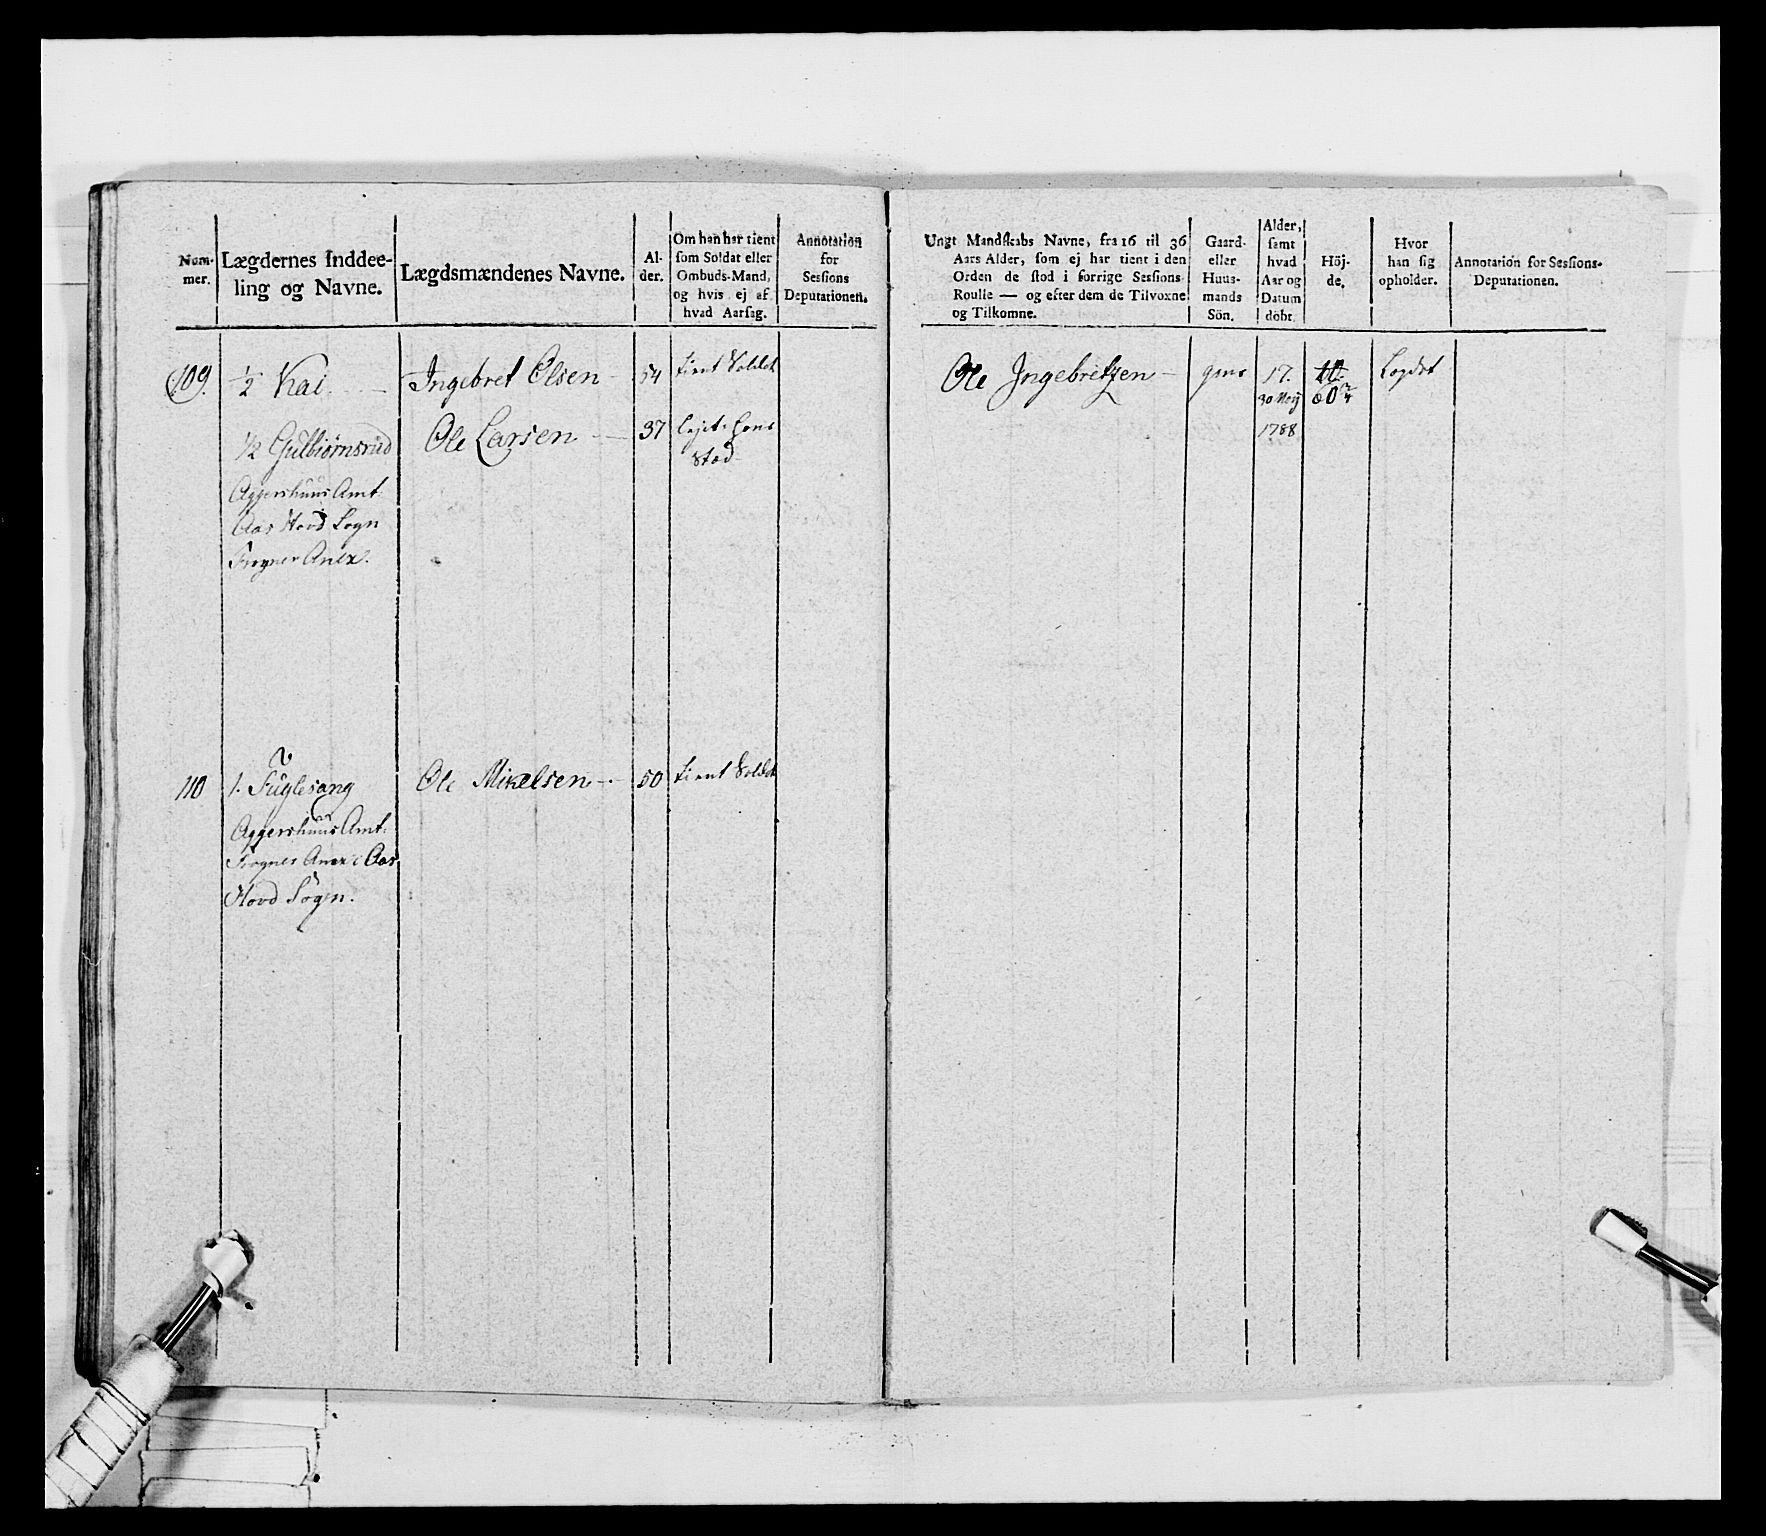 Num-
mer.
Lægdernes Inddee-
ling og Navne.
Lægdsmændenes Navne.
Al-
der.
Om han har tient
som Soldat eller
Ombuds-Mand,
og hvis ej af
hvad Aarsag.
Annotation
for
Sessions
Deputationen.
109. 1/2 Kai. Ingebret Olsen 54 tient Soldat
1/2 Gulbiørnsrud Ole Larsen 37
Aggershuus Amt
Aas Hovd Sogn
Frogner Anex.
110 1. Fuglesang Ole Mikelsen 50 tient Soldat
Aggershuus Amt
Frogner Anex i Aas
Hovd Sogn.
Ungt Mandskabs Navne, fra 16 til 36
Aars Alder, som ej har tient i den
Orden de stod i forrige Sessions
Roulle — og efter dem de Tilvoxne
og Tilkomne.
Gaard-
eller
Huus-
mands
Sön.
Alder,
samt
hvad
Aar og
Datum
döbt.
Höj-
de.
Hvor
han sig
opholder.
Annotation for Sessions-
Deputationen.
Ole Ingebretzen 17.
30 Maij
1788